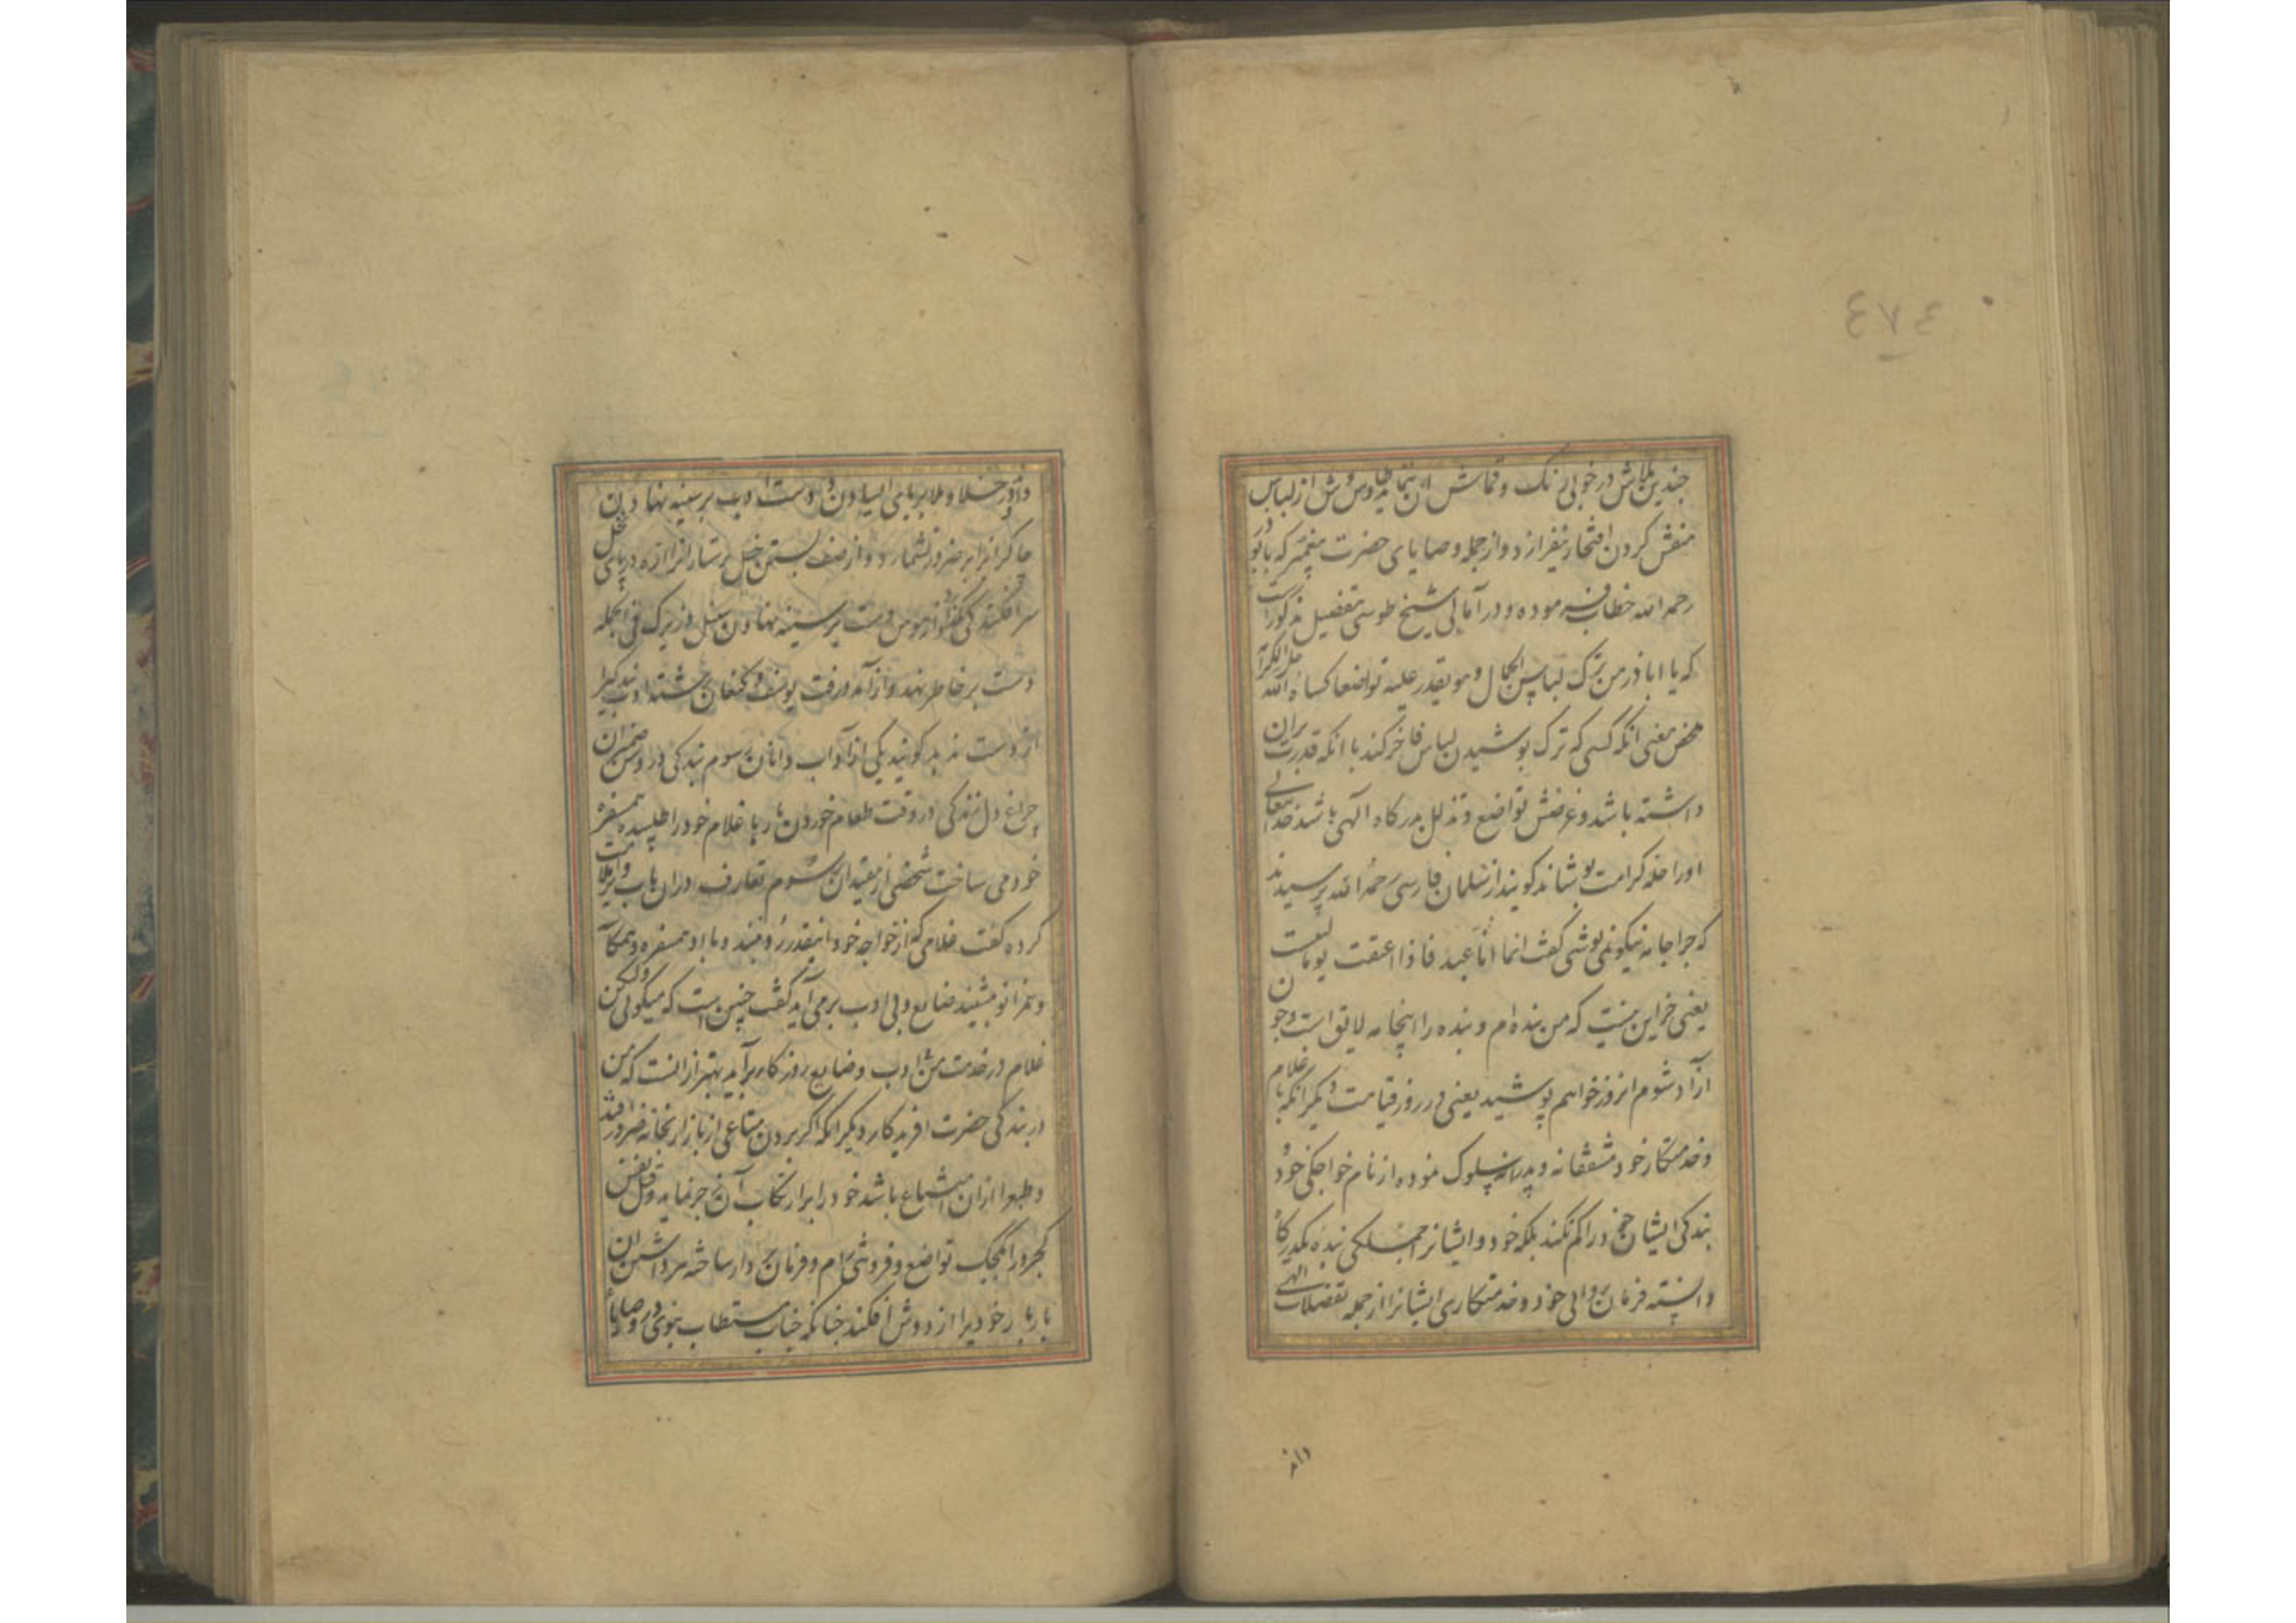 ٤٧٤
چندین تلاش در خوبی رنگ و قماش آن نماید و سروش از لباس
منقش کردن افتخار نیفرازد و از جمله وصایای حضرت پیغمبر که بابوذر
رحمه الله خطاب فرموده و در آمالی شیخ طوسی بتفصیل مذکور است
که یا اباذر من ترک لباس الجمال و هو یقدر علیه تواضعا کساه الله حلل الکرامة
محض معنی آنکه کسی که ترک پوشیدن لباس فاخر کند با آنکه قدرت بران
داشته باشد و غرضش تواضع و تذلل بدرگاه الهی باشد خدایتعالی
او را حله کرامت پوشاند گویند از سلمان فارسی رحمه الله پرسیدند
که چرا جامه نیکو نمی پوشی گفت انما انا عبد فاذا اعتقت یوما لبست
یعنی جز این نیست که من بنده ام و بنده را اینجامه لایق است و چون
آزاد شوم آنروز خواهم پوشید یعنی در روز قیامت دیگر آنکه با غلام
و خدمتکار خود مشفقانه و پدرانه سلوک نموده از نام خواجگی خود و
بندگی ایشان خود را گم نکند بلکه خود و ایشانرا جملگی بنده یکدرگاه
دانسته فرمان روائی خود و خدمتکاری ایشانرا از جمله تفضلات الهی
داند
داند و در خلا و ملا بر پای ایستادن و دست ادب بر سینه نهادن
چاکرانرا بر ضرور نشمارد و از صف بستن خیل پرستارانرا اره در پای نخل
سرافکندگی نگذارد و از هوس دست بر سینه نهادن سنبل و زیرک فی الجمله
دست بر خاطر نهد و از آمد و رفت یوسف و کنعان رشته ادب بندگیرا
از دست ندهد گویند یکی از آداب دانان رسوم بندگی و روشن ضمیران
چراغ دل زندگی در وقت طعام خوردن بارها غلام خود را طلبیده همسفره
خود می ساخت شخصی از مقیدان رسوم تعارف در آن باب ویرا ملامت
کرده گفت غلامی که از خواجه خود اینقدر رو بیند و با او همسفره و همکاسه
و همزانو نشیند ضایع و بی ادب بر می آید گفت چنین است که میگوئی ولیکن
غلام در خدمت من بی ادب و ضایع روزگار برآید بهتر از آنست که من
در بندگی حضرت آفریدگار دیگر آنکه اگر بردن متاعی از بازار بخانه ضرور افتد
و طبع را از آن امتناع باشد خود را بر ارتکاب آن جبر نماید و فیل نفس
کجرو را بکجک تواضع و فروتنی رام و فرمان بردار ساخته سرداشتن آن
بار بار خودی را از دوش افکند چنانکه جناب مستطاب نبوی در وصایا